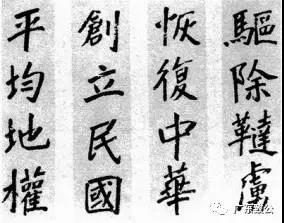 驅除韃虜
恢復中華
創立民國
平均地權
广东致公